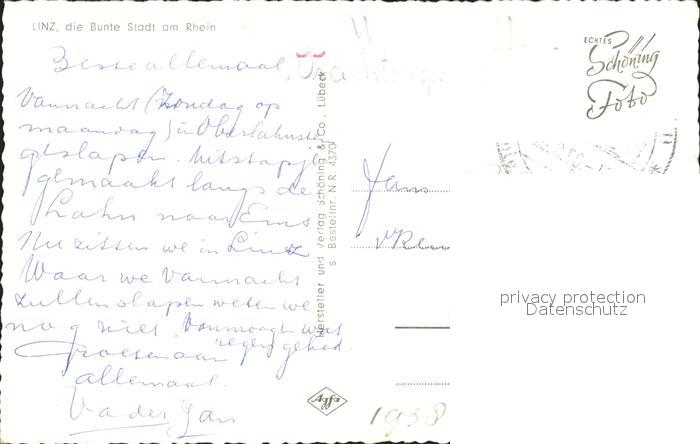 LINZ, die Bunte Stadt am Rhein
Beste allemaal,
Vannacht (Zondag op
maandag) in Oberlahnstein
geslapen. Uitstapje
gemaakt langs de
Lahn naar Ems
Nu zitten we in Linz
Waar we vannacht
zullen slapen weten we
nog niet. Vanmorgen wat
regen gehad.
Groeten aan
allemaal.
Vader Jan
Hersteller und Verlag Schöning & Co., Lübeck
Bestellnr. N.R. 4370
s
ECHTES
Schöning
Foto
Fam
Agfa
1958
privacy protection
Datenschutz